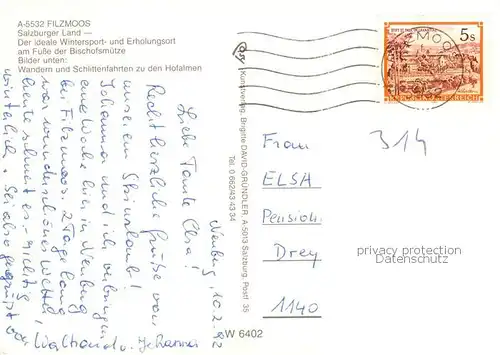 A-5532 FILZMOOS
Salzburger Land —
Der ideale Wintersport- und Erholungsort
am Fuße der Bischofsmütze
Bilder unten:
Wandern und Schlittenfahrten zu den Hofalmen
5s
REPUBLIK ÖSTERREICH
Kunstverlag, Brigitte DAVID-GRÜNDLER, A 5013 Salzburg, Postf. 35
Tel. 0 662/43 43 34
Neuberg, 10.2.92
Liebe Tante Elsa!
Recht herzliche Grüße von
unserem Skiurlaub!
Johanna und ich verbringen
eine Woche hier in Neuberg
bei Filzmoos. 2 Tage lang
war wunderschönes Wetter
heute schneit es - richtig
winterlich. Sei also gegrüßt von
Waltraud u. Johanna
314
Frau
ELSA
Pension
Drey
1140
privacy protection
Datenschutz
W 6402